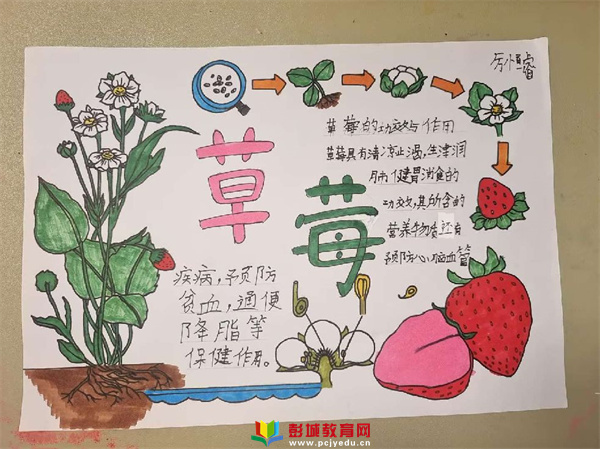 草莓
草莓的功效与作用
草莓具有清凉止渴,生津润
肺健胃消食的
功效,其所含的
营养物质还有
预防心脑血管
疾病,预防
贫血,通便
降脂等
保健作用。
彭城教育网
www.pcjyedu.cn